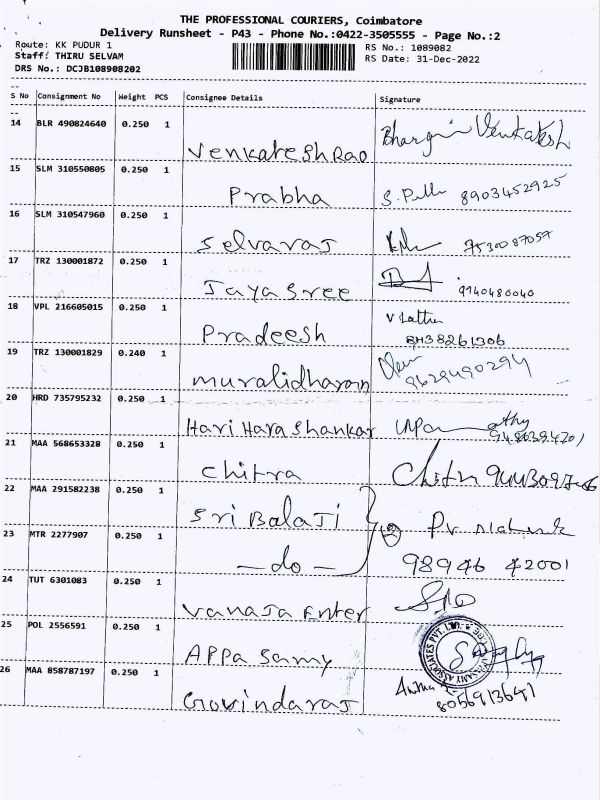 THE PROFESSIONAL COURIERS, Coimbatore
Delivery Runsheet - P43 - Phone No.:0422-3505555 - Page No.:2
Route: KK PUDUR 1 RS No.: 1089082
Staff: THIRU SELVAM RS Date: 31-Dec-2022
DRS No.: DCJB108908202
S No Consignment No Weight PCS Consignee Details Signature
14 BLR 490824640 0.250 1 Venkatesh Rao Venkatesh
15 SLM 310550805 0.250 1 Prabha 8903452925
16 SLM 310547960 0.250 1 Selvaraj 7530087057
17 TRZ 130001872 0.250 1 Jayasree 9140480040
18 VPL 216605015 0.250 1 Pradeesh
19 TRZ 130001829 0.240 1 muralidharan 9629490294
20 HRD 735795232 0.250 1 Hari Hara Shankar
21 MAA 568653328 0.250 1 Chitra
22 MAA 291582238 0.250 1 Sri Balaji
23 MTR 2277907 0.250 1 —do— 98946 42001
24 TUT 6301083 0.250 1 Vanaja Enter
25 POL 2556591 0.250 1 Appa Samy
26 MAA 858787197 0.250 1 Govindaraj 8056913641